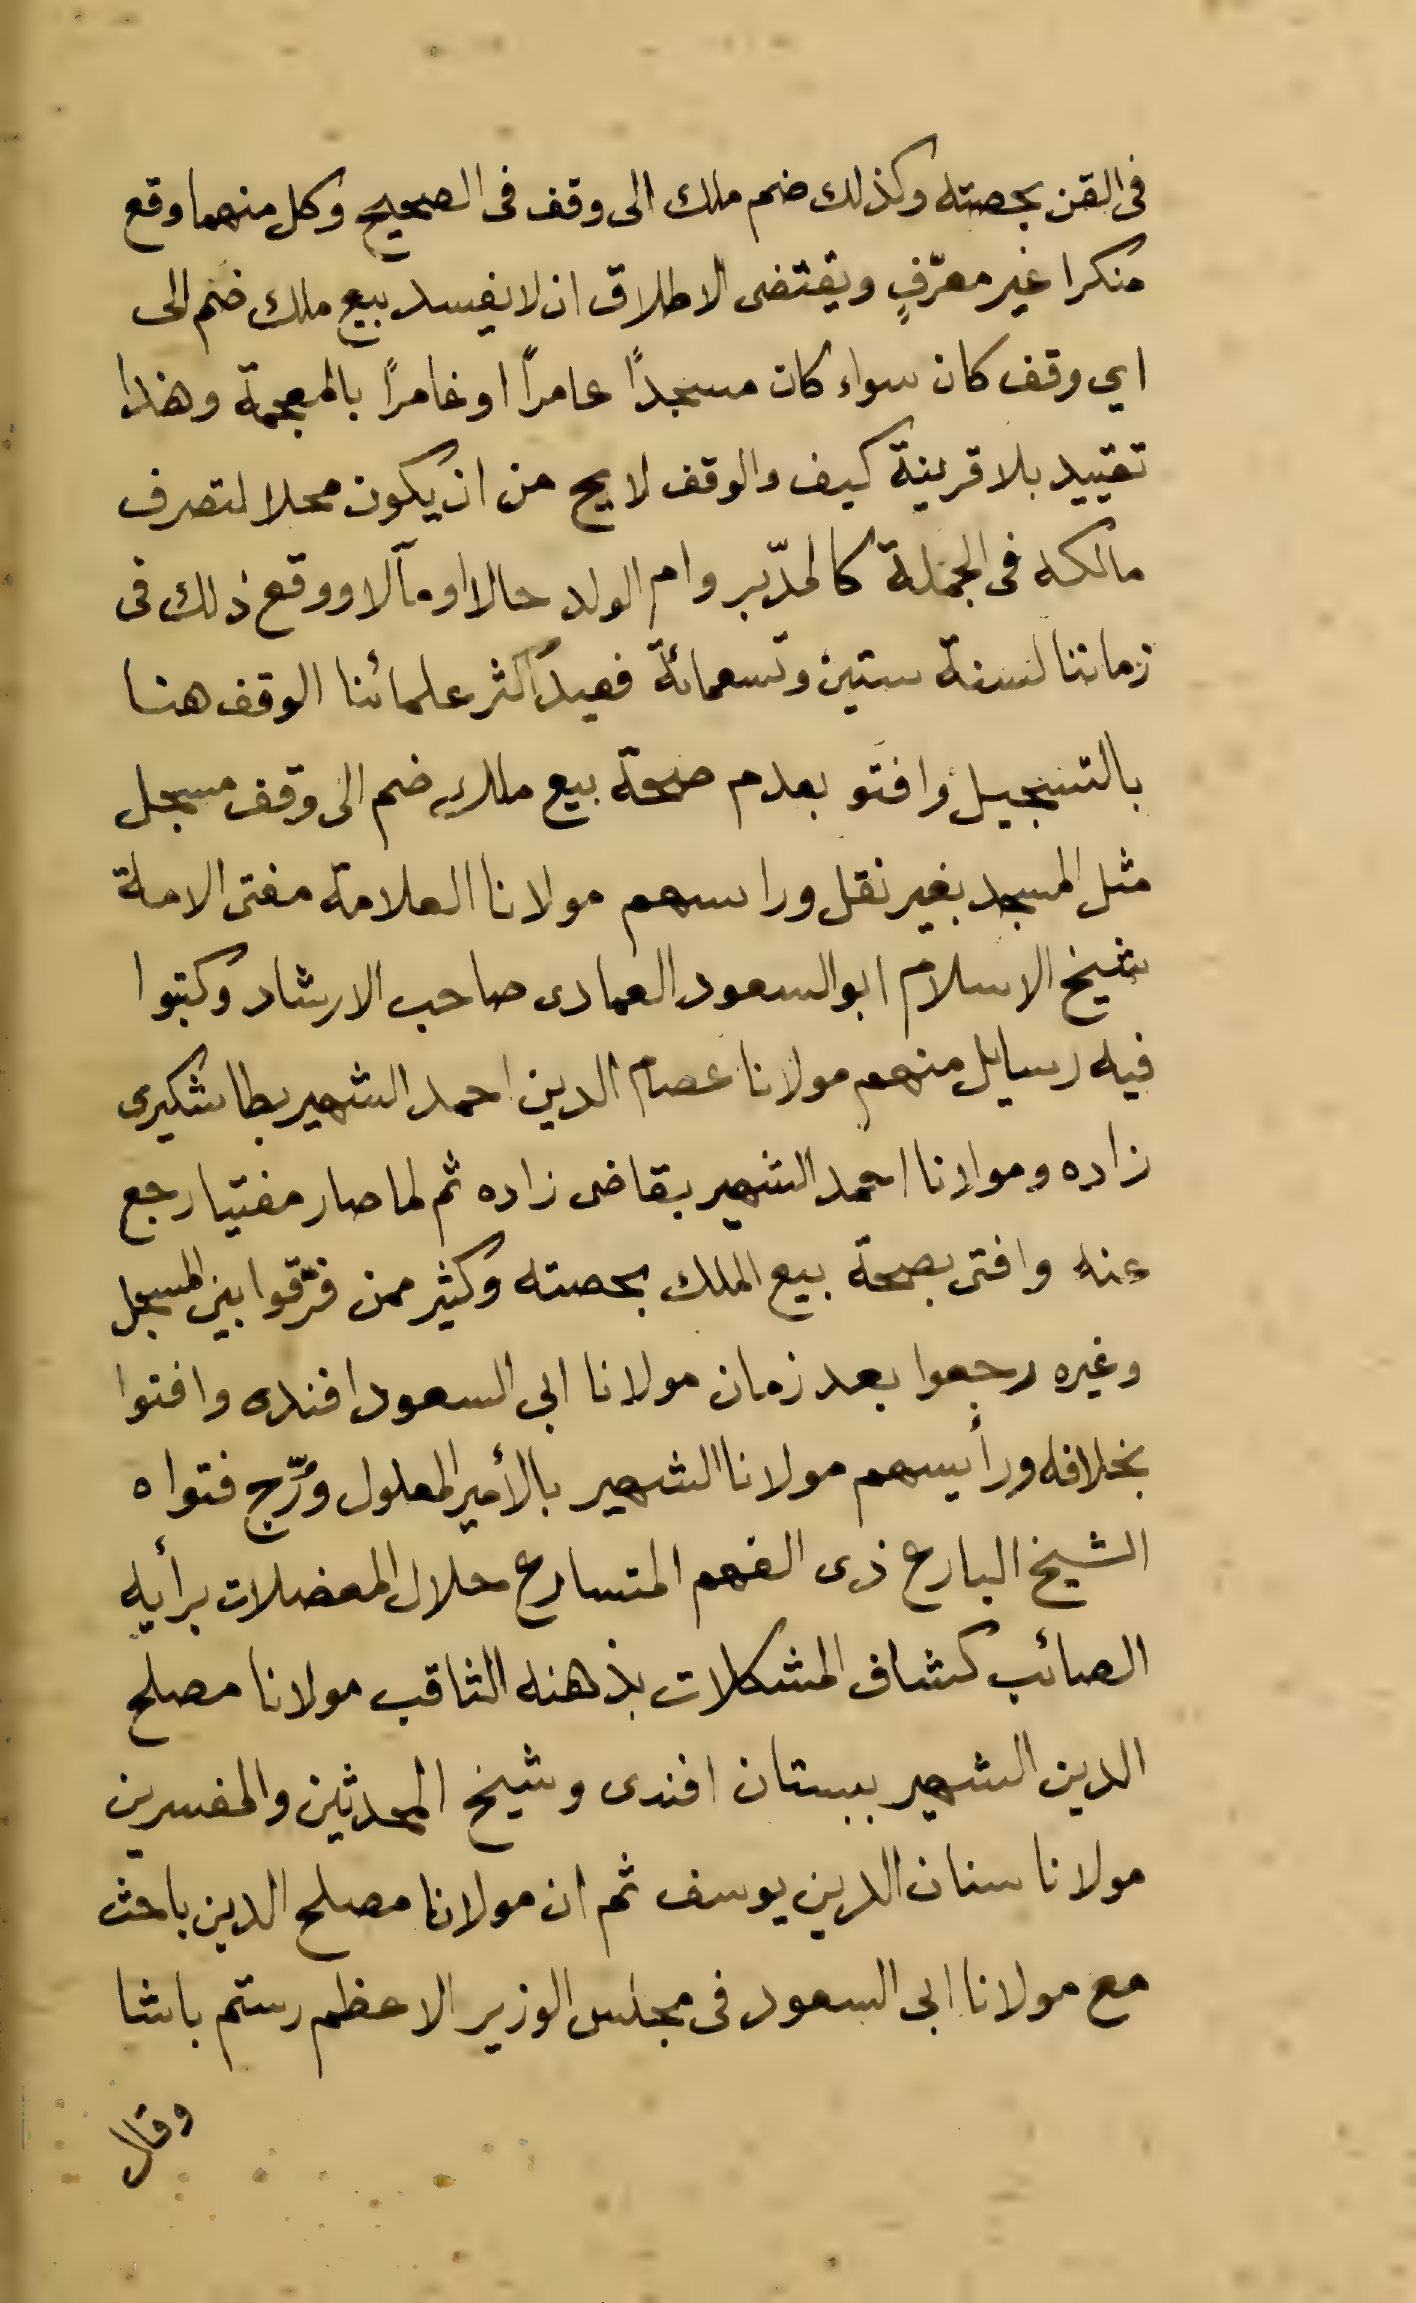 فى القن بحصته وكذلك ضم ملك الى وقف فى الصحيح وكل منهما وقع
منكرا غير معرّفٍ ويقتضى الاطلاق ان لا يفسد بيع ملك ضم الى
اي وقف كان سواء كان مسجدًا عامرًا او غامرًا بالمعجمة وهذا
تقييد بلا قرينة كيف والوقف لا يخ من ان يكون محلا لتصرف
مالكه فى الجملة كالمدّبر وام الولد حالا او مآلا ووقع ذلك فى
زماننا لسنة ستين وتسعمائة فقيد اكثر علمائنا الوقف هنا
بالتسجيل وافتو بعدم صحة بيع ملك ضم الى وقف مسجل
مثل المسجد بغير نقل وراسهم مولانا العلامة مفتى الامة
شيخ الاسلام ابو السعود العمادى صاحب الارشاد وكتبوا
فيه رسايل منهم مولانا عصام الدين احمد الشهير بطاشكيرى
زاده ومولانا احمد الشهير بقاضى زاده ثم لما صار مفتيا رجع
عنه وافتى بصحة بيع الملك بحصته وكثير ممن فرّقوا بين المسجل
وغيره رجعوا بعد زمان مولانا ابى السعود افندى وافتوا
بخلافه ورأيسهم مولانا الشهير بالأمير المعلول ورّج فتواه
الشيخ البارع ذى الفهم المتسارع حلال المعضلات برأيه
الصائب كشاف المشكلات بذهنه الثاقب مولانا مصلح
الدين الشهير ببستان افندى وشيخ المحدثين والمفسرين
مولانا سنان الدين يوسف ثم ان مولانا مصلح الدين باحث
مع مولانا ابى السعود فى مجلس الوزير الاعظم رستم باشا
وقال